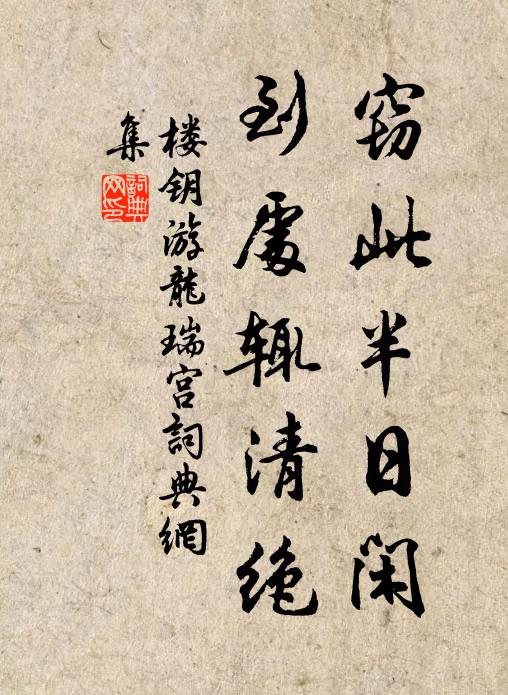 窃此半日闲
到處辄清绝
楼钥游龍瑞宫詞典網
集
詞典网印